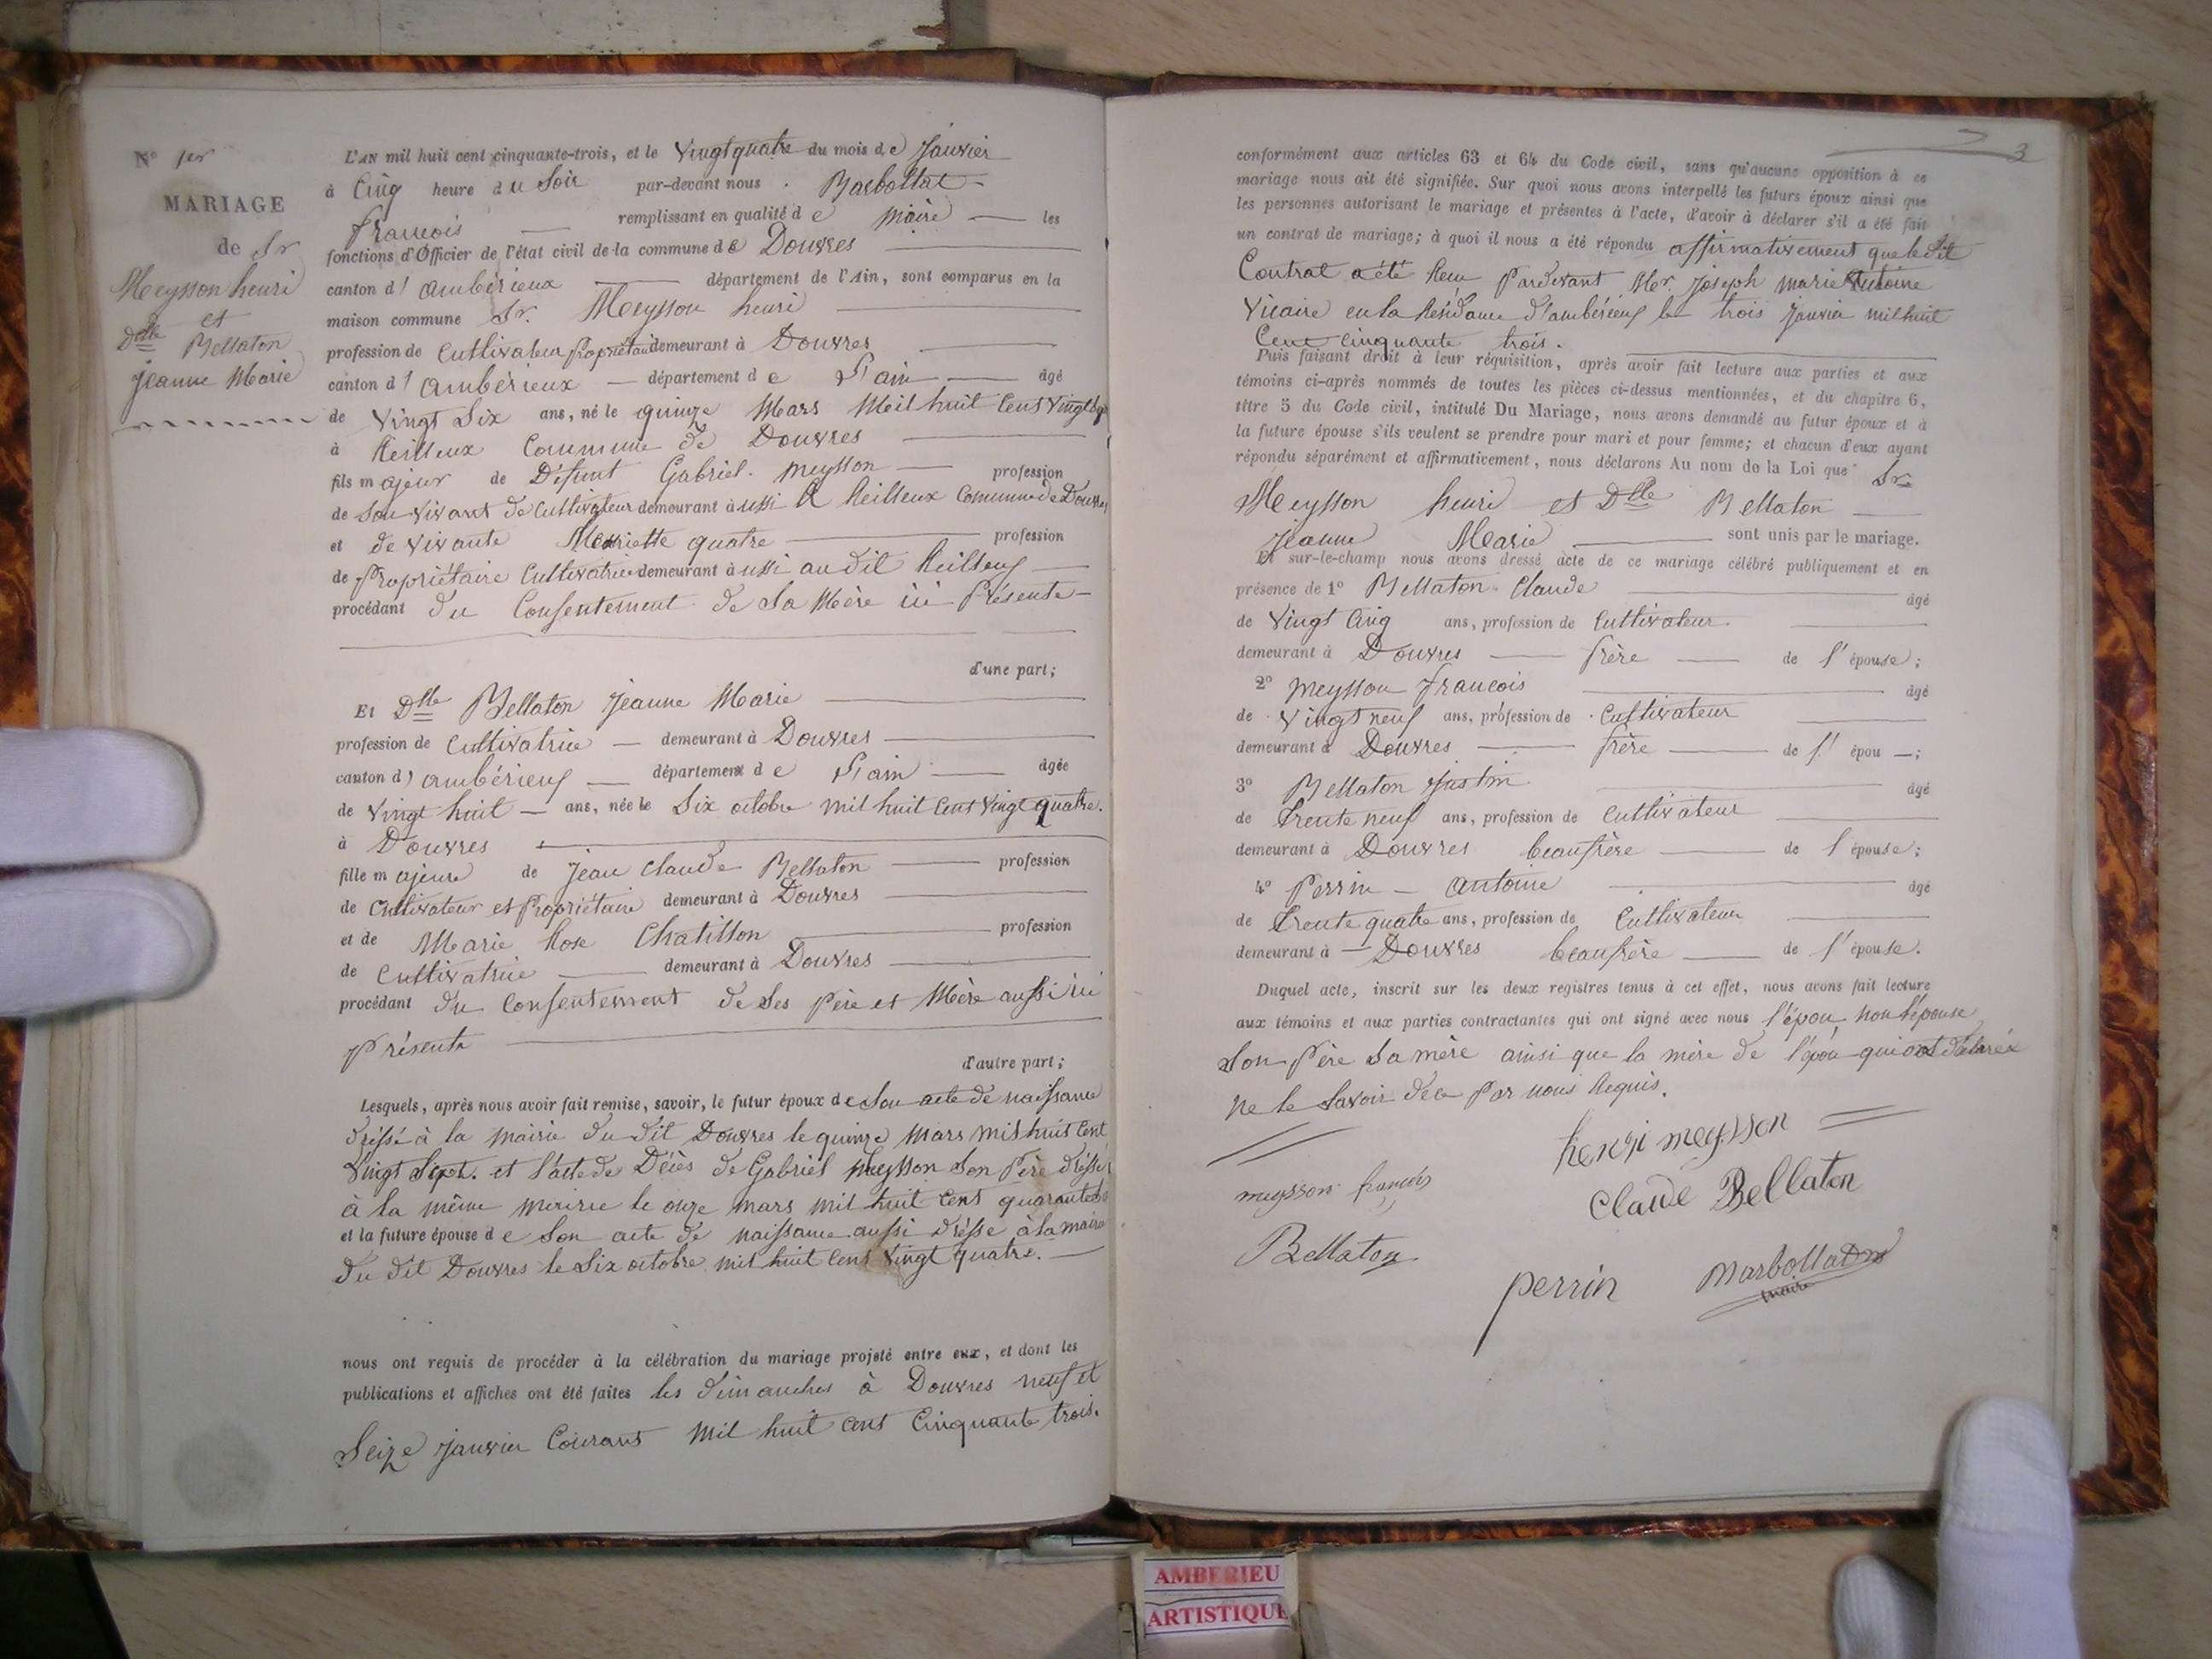 N° 1er
MARIAGE
de Sr
Meysson henri
et
Dlle Bellaton
Jeanne Marie
L'AN mil huit cent cinquante-trois, et le Vingt quatre du mois de Janvier
à Cinq heure du Soir par-devant nous Barbollat
francois remplissant en qualité de maire les
fonctions d'Officier de l'état civil de la commune de Douvres
canton d'ambérieux département de l'Ain, sont comparus en la
maison commune Sr. Meysson henri
profession de Cultivateur propriétaire demeurant à Douvres
canton d'ambérieux département de l'ain âgé
de Vingt Six ans, né le quinze Mars Meil huit Cent Vingt
à Reilleux Commune de Douvres
fils majeur de Défunt Gabriel meysson profession
de Son vivant de Cultivateur demeurant aussi à Reilleux Commune de Douvres
et de vivante Mariette quatre profession
de propriétaire Cultivatrice demeurant aussi au dit Reilleux
procédant du Consentement de Sa Mère ici Présente
d'une part;
Et Dlle Bellaton Jeanne Marie
profession de Cultivatrice demeurant à Douvres
canton d'ambérieux département de l'ain âgée
de Vingt huit ans, née le Six octobre mil huit Cent Vingt quatre.
à Douvres
fille majeure de Jean Claude Bellaton profession
de Cultivateur et Propriétaire demeurant à Douvres
et de Marie Rose Chatillon profession
de Cultivatrice demeurant à Douvres
procédant du Consentement de Ses Père et Mère aussi ici
Présents
d'autre part;
Lesquels, après nous avoir fait remise, savoir, le futur époux de Son acte de naissance
dréssé à la mairie du dit Douvres le quinze Mars mil huit Cent
Vingt Sept. et l'acte de Décès de Gabriel Meysson Son Père dréssé
à la même mairie le onze mars mil huit Cent quarante
et la future épouse de Son acte de naissance aussi dréssé à la mairie
du dit Douvres le Six octobre mil huit Cent Vingt quatre.
nous ont requis de procéder à la célébration du mariage projeté entre eux, et dont les
publications et affiches ont été faites les dimanches à Douvres neuf et
Seize janvier Courant Mil huit Cent Cinquante trois.
3
conformément aux articles 63 et 64 du Code civil, sans qu'aucune opposition à ce
mariage nous ait été signifiée. Sur quoi nous avons interpellé les futurs époux ainsi que
les personnes autorisant le mariage et présentes à l'acte, d'avoir à déclarer s'il a été fait
un contrat de mariage; à quoi il nous a été répondu affirmativement que le dit
Contrat a été Reçu Pardevant Mr. Joseph marie Antoine
Vicaire en la Résidence d'ambérieux le trois Janvier mil huit
Cent Cinquante trois.
Puis faisant droit à leur réquisition, après avoir fait lecture aux parties et aux
témoins ci-après nommés de toutes les pièces ci-dessus mentionnées, et du chapitre 6,
titre 5 du Code civil, intitulé Du Mariage, nous avons demandé au futur époux et à
la future épouse s'ils veulent se prendre pour mari et pour femme; et chacun d'eux ayant
répondu séparément et affirmativement, nous déclarons Au nom de la Loi que Sr
Meysson henri et Dlle Bellaton
Jeanne Marie sont unis par le mariage.
Et sur-le-champ nous avons dressé acte de ce mariage célébré publiquement et en
présence de 1° Bellaton Claude âgé
de Vingt Cinq ans, profession de Cultivateur
demeurant à Douvres frère de l'épouse;
2° Meysson francois âgé
de Vingt neuf ans, profession de Cultivateur
demeurant à Douvres frère de l'épou ;
3° Bellaton Justin âgé
de Trente neuf ans, profession de Cultivateur
demeurant à Douvres beaufrère de l'épouse;
4° Perrin Antoine âgé
de Trente quatre ans, profession de Cultivateur
demeurant à Douvres beaufrère de l'épouse.
Duquel acte, inscrit sur les deux registres tenus à cet effet, nous avons fait lecture
aux témoins et aux parties contractantes qui ont signé avec nous l'épou non l'épouse
Son Père Sa mère ainsi que la mère de l'épou qui ont déclaré
ne le Savoir de ce Par nous Requis.
henri meysson
meysson francois
Claude Bellaton
Bellaton
perrin
Marbollat
maire
AMBERIEU
ARTISTIQUE